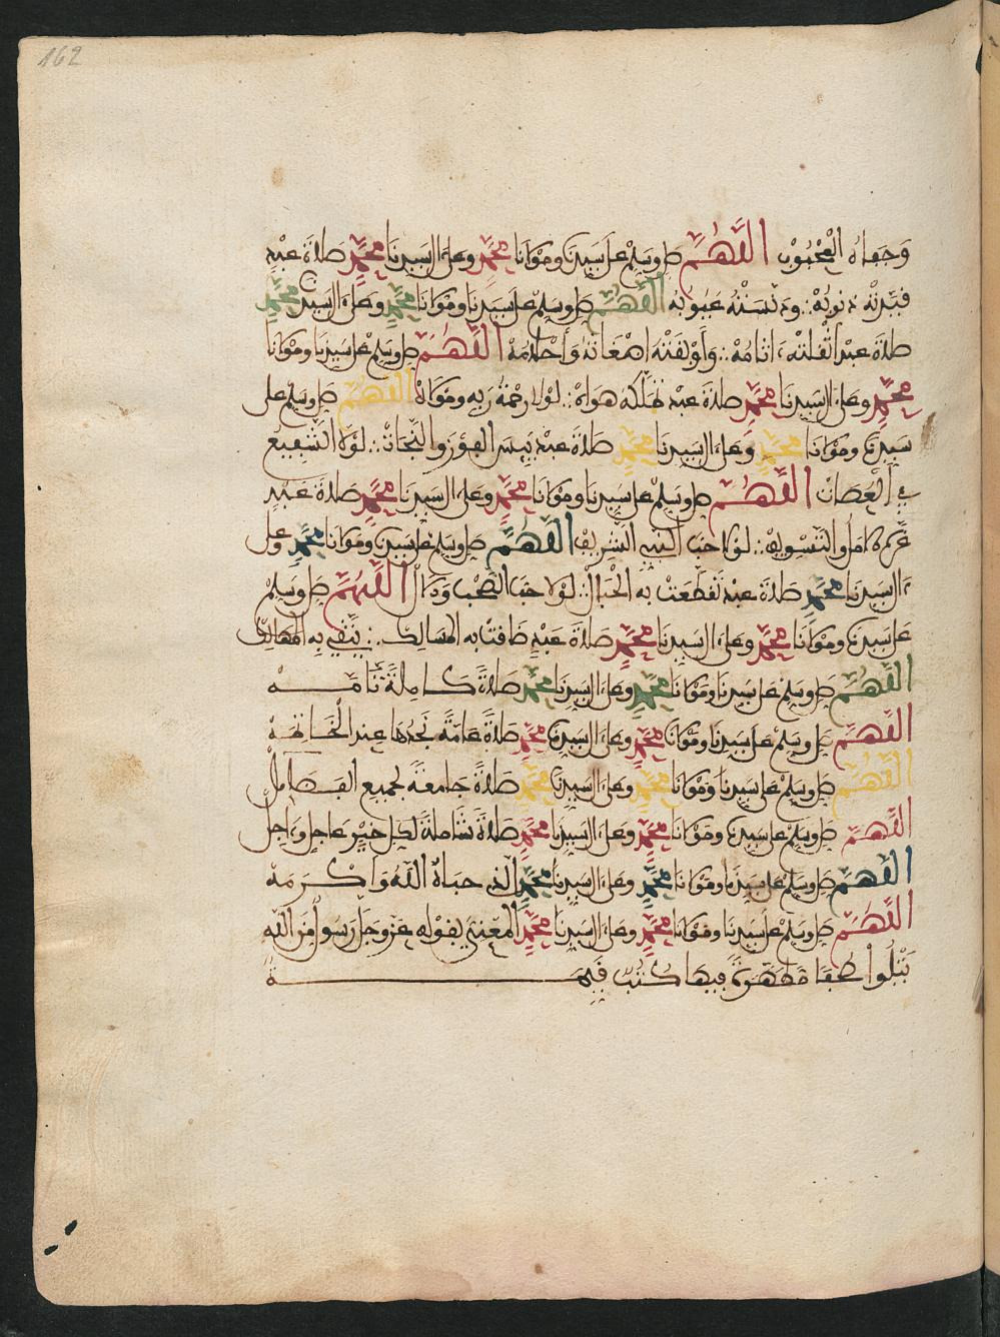 162
وَجَفَاهُ الْمَحْبُوبْ اللَّهُمَّ صل وسلم على سيدنا ومولانا محمد وعلى ءال سيدنا محمد صلاة عبد
قيدته ذنوبه ∴ ودنسته عيوبه اللهم صل وسلم على سيدنا ومولانا محمد وعلى ءال سيدنا محمد
صلاة عبد اثقلته ءاثامه ∴ وَأَوْبَقَتْهُ أضغاثه وأحلامه اللهم صل وسلم على سيدنا ومولانا
محمد وعلى ءال سيدنا محمد صلاة عبد هواه ∴ لولا رحمة ربه ومولاه اللهم صل وسلم على
سيدنا ومولانا محمد وعلى ءال سيدنا محمد صلاة عبد الفوز والنجات ∴ لولا الشفيع
في العصات اللهم صل وسلم على سيدنا ومولانا محمد وعلى ءال سيدنا محمد صلاة عبد
غره الامل والتسويف ∴ لولا حب النبي الشريف اللهم صل وسلم على سيدنا ومولانا محمد وعلى
ءال سيدنا محمد صلاة عبد تقطعت به الحبال ∴ لولا حب الصحب والآل اللهم صل وسلم
على سيدنا ومولانا محمد وعلى ءال سيدنا محمد صلاة عبد ضاقت به المسالك ∴ به المهالك
اللهم صل وسلم على سيدنا ومولانا محمد وعلى ءال سيدنا محمد صلاة كاملة تامة
اللهم صل وسلم على سيدنا ومولانا محمد وعلى ءال سيدنا محمد صلاة عامة نجدها عند الخاتمة
اللهم صل وسلم على سيدنا ومولانا محمد وعلى ءال سيدنا محمد صلاة جامعة لجميع الفضائل
اللهم صل وسلم على سيدنا ومولانا محمد وعلى ءال سيدنا محمد صلاة شاملة لكل خير عاجل وءاجل
اللهم صل وسلم على سيدنا ومولانا محمد وعلى ءال سيدنا محمد الذي حباه الله وأكرمه
اللهم صل وسلم على سيدنا ومولانا محمد وعلى ءال سيدنا محمد المعني بقوله عز وجل رسول من الله
يتلوا صحفا مطهرة فيها كتب قيمة